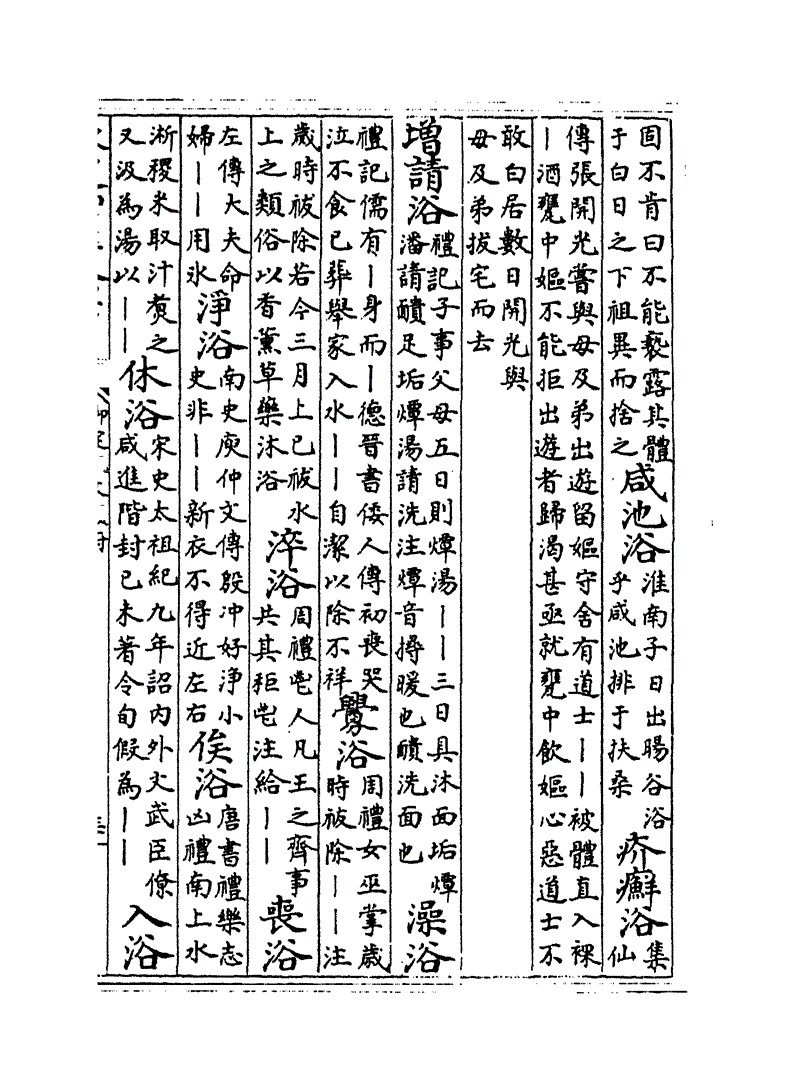 固不肯曰不能褻露其體
于白日之下祖異而捨之
咸池浴
淮南子日出暘谷浴
乎咸池排于扶桑
疥癬浴
集
仙
傳張開光嘗與母及弟出遊留嫗守舍有道士丨丨被體直入裸
丨酒甕中嫗不能拒出遊者歸渴甚亟就甕中飲嫗心惡道士不
敢白居數日開光與
母及弟拔宅而去
增請浴
禮記子事父母五日則燂湯丨丨三日具沐面垢燂
潘請靧足垢燂湯請洗注燂音撏暖也靧洗面也
澡浴
禮記儒有丨身而丨德晉書倭人傳初喪哭
泣不食已葬舉家入水丨丨自潔以除不祥
釁浴
周禮女巫掌歲
時祓除丨丨注
歲時祓除若今三月上巳祓水
上之類俗以香薰草藥沐浴
淬浴
周禮鬯人凡王之齊事
共其秬鬯注給丨丨
喪浴
左傳大夫命
婦丨丨用氷
淨浴
南史庾仲文傳殷冲好淨小
史非丨丨新衣不得近左右
俟浴
唐書禮樂志
凶禮南上水
淅稷米取汁煑之
又汲為湯以丨丨
休浴
宋史太祖紀九年詔內外文武臣僚
咸進階封己未著令旬假為丨丨
入浴